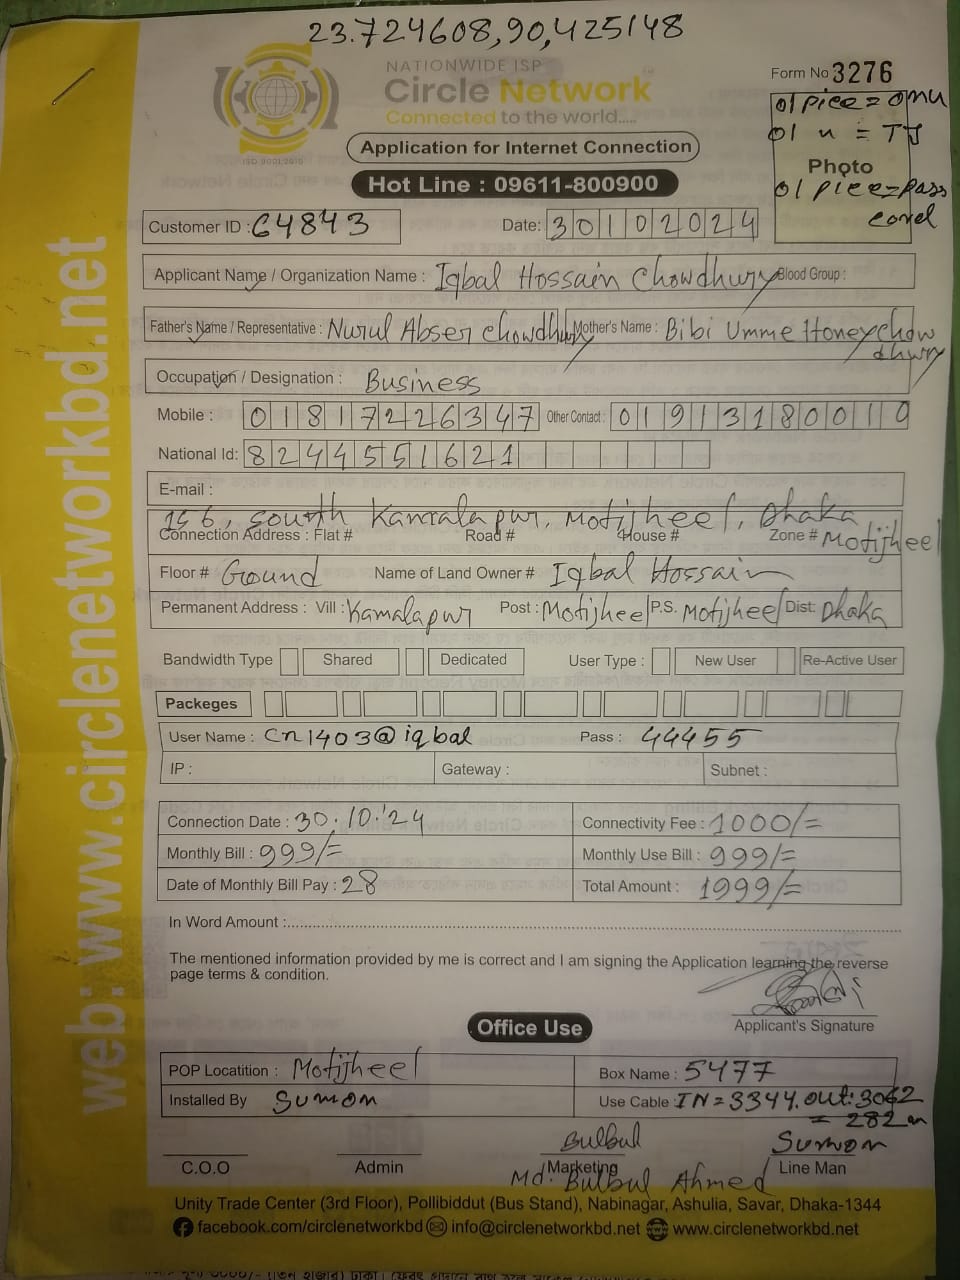 23.724608,90,425148
NATIONWIDE ISP
Circle Network
Connected to the world.....
ISO 9001:2015
Form No 3276
01 piece = omu
01 u = TJ
Photo
01 piece = pass
Application for Internet Connection
Hot Line : 09611-800900
Customer ID : C4843
Date: 30102024
Applicant Name / Organization Name : Iqbal Hossain Chowdhury Blood Group :
Father's Name / Representative : Nurul Abser chowdhury Mother's Name : Bibi Umme Honey chowdhury
Occupation / Designation : Business
Mobile : 01817226347 Other Contact : 01913180010
National Id: 8244551621
E-mail :
156, south Kamalapur, Motijheel, Dhaka
Connection Address : Flat # Road # House # Zone # Motijheel
Floor # Ground Name of Land Owner # Iqbal Hossain
Permanent Address : Vill : Kamalapur Post : Motijheel P.S. Motijheel Dist: Dhaka
Bandwidth Type Shared Dedicated User Type : New User Re-Active User
Packeges
User Name : cn1403@iqbal Pass : 44455
IP : Gateway : Subnet :
Connection Date : 30.10.'24 Connectivity Fee : 1000/=
Monthly Bill : 999/= Monthly Use Bill : 999/=
Date of Monthly Bill Pay : 28 Total Amount : 1999/=
In Word Amount :
The mentioned information provided by me is correct and I am signing the Application learning the reverse
page terms & condition.
Applicant's Signature
Office Use
POP Locatition : Motijheel Box Name : 5477
Installed By Sumon Use Cable : IN = 3344. out: 3062
= 282 m
Bulbul Sumon
C.O.O Admin Marketing Line Man
Md. Bulbul Ahmed
Unity Trade Center (3rd Floor), Pollibiddut (Bus Stand), Nabinagar, Ashulia, Savar, Dhaka-1344
facebook.com/circlenetworkbd info@circlenetworkbd.net www.circlenetworkbd.net
web: www.circlenetworkbd.net